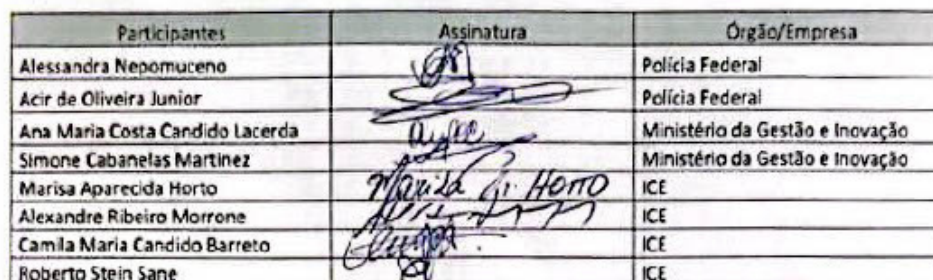 Participantes Assinatura Órgão/Empresa
Alessandra Nepomuceno Polícia Federal
Acir de Oliveira Junior Polícia Federal
Ana Maria Costa Candido Lacerda Ministério da Gestão e Inovação
Simone Cabanelas Martinez Ministério da Gestão e Inovação
Marisa Aparecida Horto Mariza Ap. HORTO ICE
Alexandre Ribeiro Morrone ICE
Camila Maria Candido Barreto ICE
Roberto Stein Sane ICE